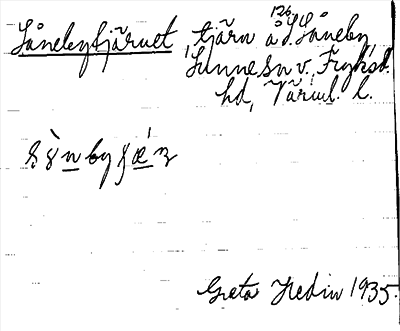 Lånebytjärnet, tjärn å 126 S. Låneby,
Sunne sn v., Fryksd.
hd, Värml. l.
Greta Hedin 1935.